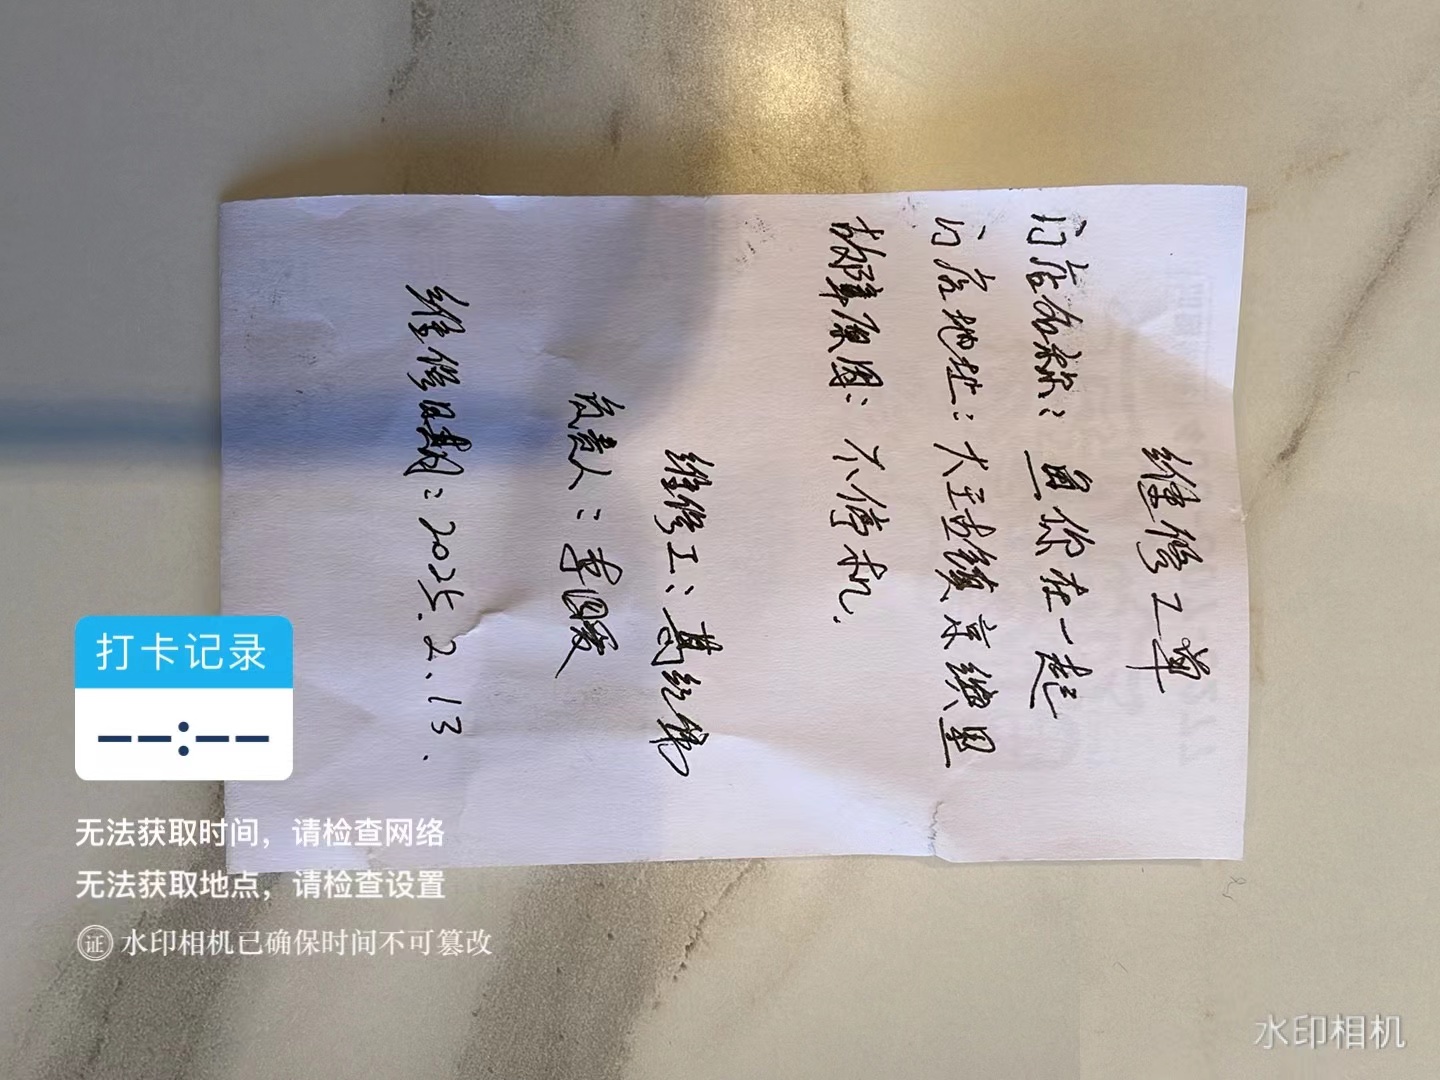 维修工单
门店名称：鱼你在一起
门店地址：大王古镇京缤里
故障原因：不停机.
维修工：葛纪伟
负责人：李国爱
维修日期：2025.2.13.
打卡记录
--:--
无法获取时间，请检查网络
无法获取地点，请检查设置
证 水印相机已确保时间不可篡改
水印相机